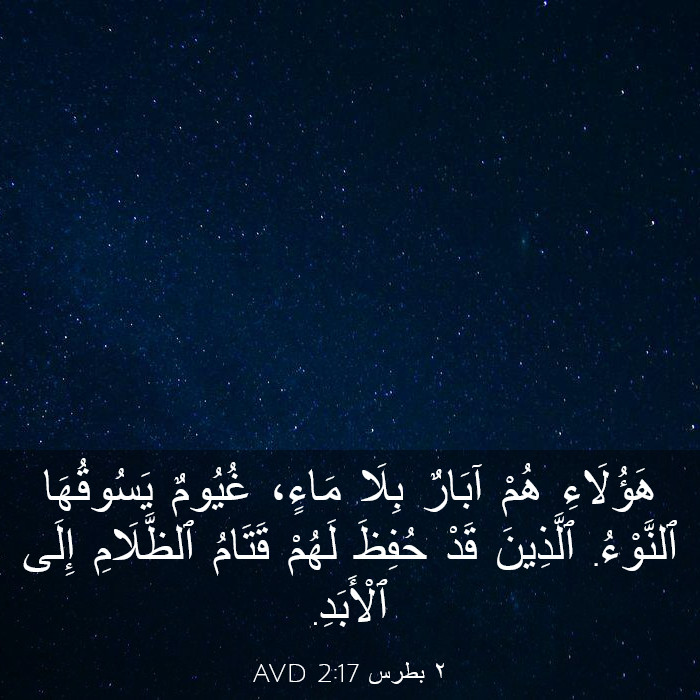 هَؤُلَاءِ هُمْ آبَارٌ بِلَا مَاءٍ، غُيُومٌ يَسُوقُهَا
ٱلنَّوْءُ. ٱلَّذِينَ قَدْ حُفِظَ لَهُمْ قَتَامُ ٱلظَّلَامِ إِلَى
ٱلْأَبَدِ.
٢ بطرس 2:17 AVD